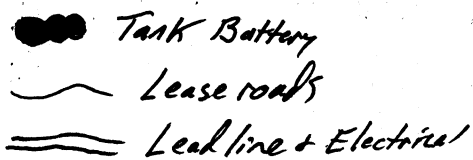 Tank Battery
Lease roads
Lead line & Electrical